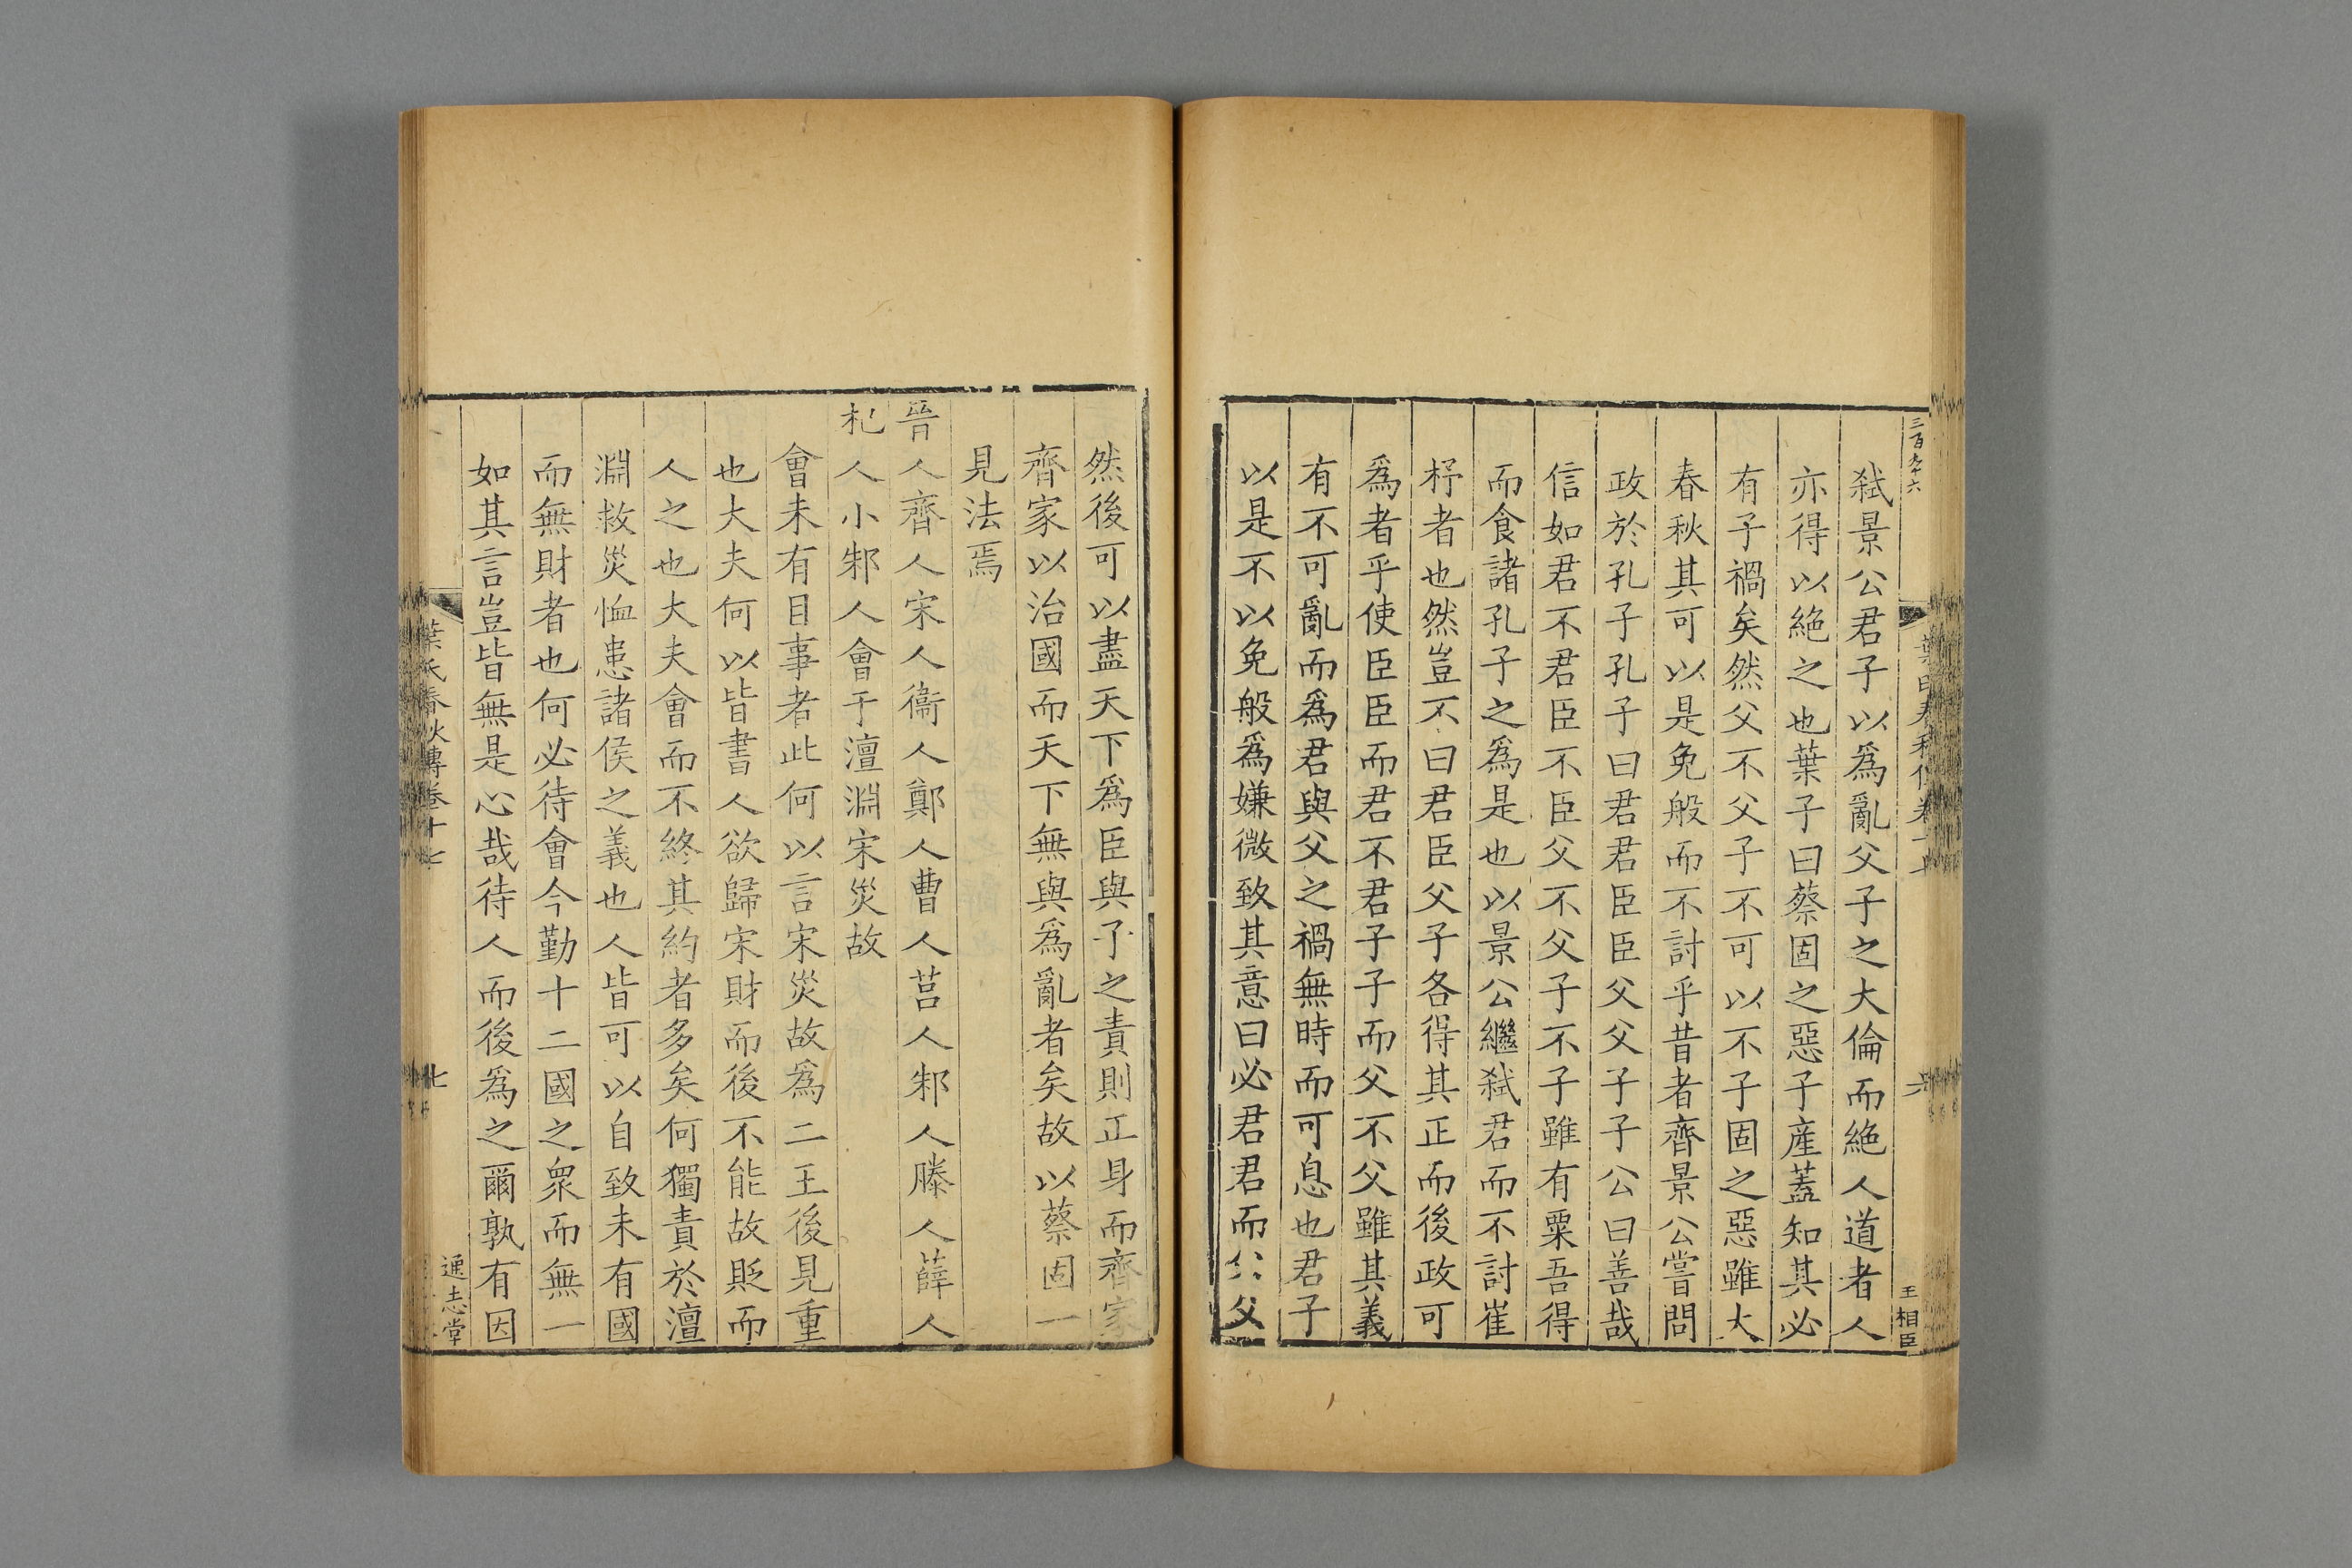 三百九十六
王相臣
弑景公君子以爲亂父子之大倫而絶人道者人
亦得以絶之也葉子曰蔡固之惡子産蓋知其必
有子禍矣然父不父子不可以不子固之惡雖大
春秋其可以是免般而不討乎昔者齊景公嘗問
政於孔子孔子曰君君臣臣父父子子公曰善哉
信如君不君臣不臣父不父子不子雖有粟吾得
而食諸孔子之爲是也以景公繼弑君而不討崔
杼者也然豈不曰君臣父子各得其正而後政可
爲者乎使臣臣而君不君子子而父不父雖其義
有不可亂而爲君與父之禍無時而可息也君子
以是不以免般爲嫌微致其意曰必君君而父
然後可以盡天下爲臣與子之責則正身而齊家
齊家以治國而天下無與爲亂者矣故以蔡固一
見法焉
晉人齊人宋人衞人鄭人曹人莒人邾人滕人薛人
杞人小邾人會于澶淵宋災故
會未有目事者此何以言宋災故爲二王後見重
也大夫何以皆書人欲歸宋財而後不能故貶而
人之也大夫會而不終其約者多矣何獨責於澶
淵救災恤患諸侯之義也人皆可以自致未有國
而無財者也何必待會今勤十二國之衆而無一
如其言豈皆無是心哉待人而後爲之爾孰有因
葉氏春秋傳卷十七
七
通志堂